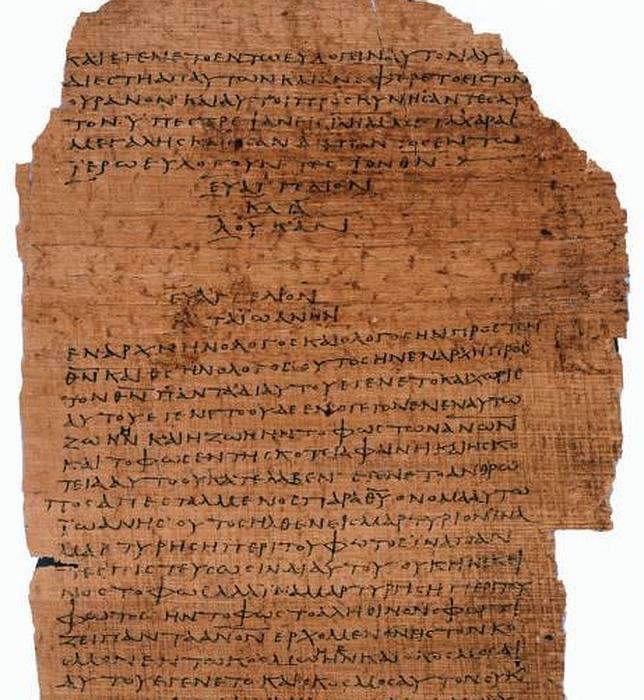 ΚΑΙ ΕΓΕΝΕΤΟ ΕΝ ΤΩ ΕΥΛΟΓΕΙΝ ΑΥΤΟΝ ΑΥΤ
ΔΙΕΣΤΗ ΑΠ ΑΥΤΩΝ ΚΑΙ ΑΝΕΦΕΡΕΤΟ ΕΙΣ ΤΟΝ
ΟΥΡΑΝΟΝ ΚΑΙ ΑΥΤΟΙ ΠΡΟΣΚΥΝΗΣΑΝΤΕΣ ΑΥ
ΤΟΝ ΥΠΕΣΤΡΕΨΑΝ ΕΙΣ ΜΕΤΑ ΧΑΡΑΣ
ΜΕΓΑΛΗΣ ΚΑΙ ΗΣΑΝ ΔΙΑ ΠΑΝΤΟΣ ΕΝ ΤΩ
ΙΕΡΩ ΕΥΛΟΓΟΥΝΤΕΣ ΤΟΝ ΘΝ
ΕΥΑΓΓΕΛΙΟΝ
ΚΑΤΑ
ΛΟΥΚΑΝ
ΕΥΑΓΓΕΛΙΟΝ
ΚΑΤΑ ΙΩΑΝΗΝ
ΕΝ ΑΡΧΗ ΗΝ Ο ΛΟΓΟΣ ΚΑΙ Ο ΛΟΓΟΣ ΗΝ ΠΡΟΣ ΤΟΝ
ΘΝ ΚΑΙ ΘΣ ΗΝ Ο ΛΟΓΟΣ ΟΥΤΟΣ ΗΝ ΕΝ ΑΡΧΗ ΠΡΟΣ
ΤΟΝ ΘΝ ΠΑΝΤΑ ΔΙ ΑΥΤΟΥ ΕΓΕΝΕΤΟ ΚΑΙ ΧΩΡΙΣ
ΑΥΤΟΥ ΕΓΕΝΕΤΟ ΟΥΔΕ ΕΝ Ο ΓΕΓΟΝΕΝ ΕΝ ΑΥΤΩ
ΖΩΗ ΗΝ ΚΑΙ Η ΖΩΗ ΗΝ ΤΟ ΦΩΣ ΤΩΝ ΑΝΩΝ
ΚΑΙ ΤΟ ΦΩΣ ΕΝ ΤΗ ΣΚΟΤΕΙΑ ΦΑΙΝΕΙ ΚΑΙ Η ΣΚΟ
ΤΕΙΑ ΑΥΤΟ ΟΥ ΚΑΤΕΛΑΒΕΝ ΕΓΕΝΕΤΟ ΑΝΘΡΩ
ΠΟΣ ΑΠΕΣΤΑΛΜΕΝΟΣ ΠΑΡΑ ΘΥ ΟΝΟΜΑ ΑΥΤΩ
ΙΩΑΝΗΣ ΟΥΤΟΣ ΗΛΘΕΝ ΕΙΣ ΜΑΡΤΥΡΙΟΝ ΙΝΑ
ΜΑΡΤΥΡΗΣΗ ΠΕΡΙ ΤΟΥ ΦΩΤΟΣ ΙΝΑ ΠΑΝ
ΤΕΣ ΠΙΣΤΕΥΣΩΣΙΝ ΔΙ ΑΥΤΟΥ ΟΥΚ ΗΝ ΕΚΕΙ
ΝΟΣ ΤΟ ΦΩΣ ΑΛΛ ΙΝΑ ΜΑΡΤΥΡΗΣΗ ΠΕΡΙ ΤΟΥ
ΦΩΤΟΣ ΗΝ ΤΟ ΦΩΣ ΤΟ ΑΛΗΘΙΝΟΝ Ο ΦΩΤΙ
ΖΕΙ ΠΑΝΤΑ ΑΝΟΝ ΕΡΧΟΜΕΝΟΝ ΕΙΣ ΤΟΝ ΚΟ
ΣΜΟΝ ΕΝ ΤΩ ΚΟΣΜΩ ΗΝ ΚΑΙ Ο ΚΟΣΜΟΣ ΔΙ
ΑΥΤΟΥ ΕΓΕΝΕΤΟ ΚΑΙ Ο ΚΟΣΜΟΣ ΑΥΤΟΝ ΟΥΚ